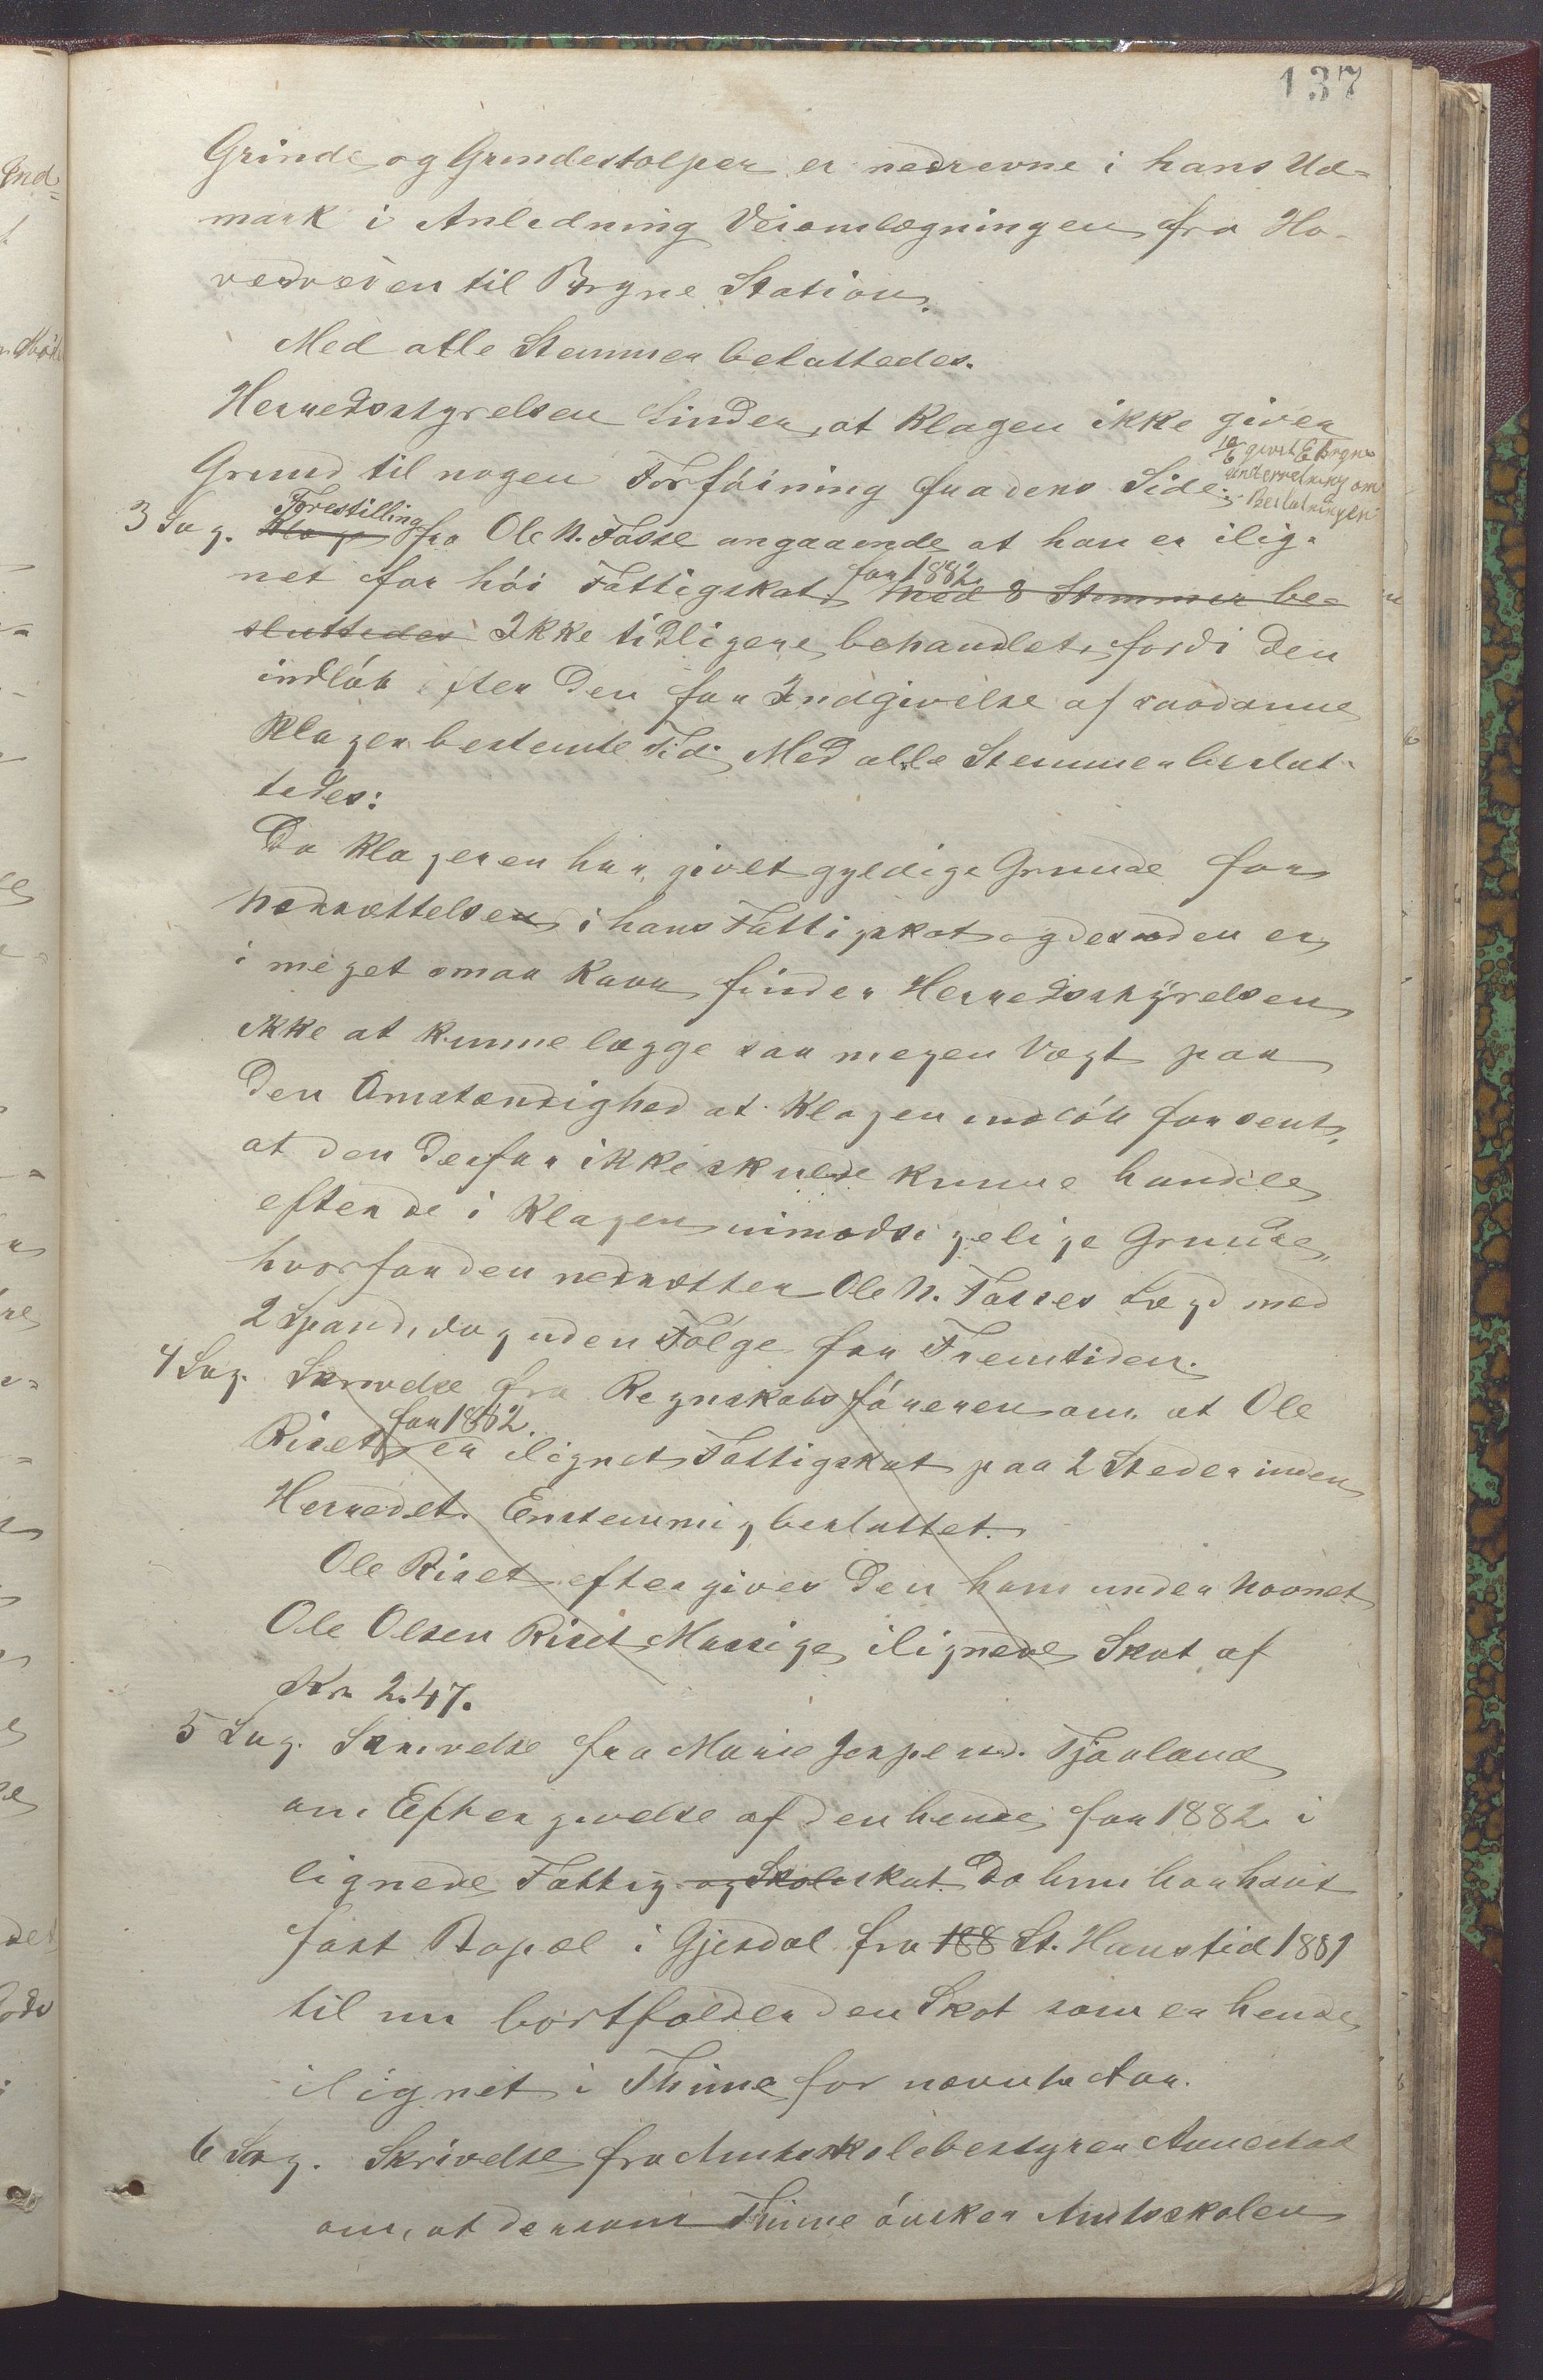 137
Grinde og Grindestolper er nedrevne i hans Ud-
mark i Anledning Veiomlægningen fra Ho-
vedveien til Bryne Station.
Med alle Stemmer besluttedes.
Herredsstyrelsen finder, at Klagen ikke giver
Grund til nogen Forföining fra dens Side.
10/6 givet E Bryne
Underretning om
Beslutningen
3 Sag. Klage Forestilling fra Ole N. Fosse angaaende at han er ilig-
net for höi Fattigskat for 1882. Med 8 Stemmer be-
sluttedes Ikke tidligere behandlet, fordi den
indlöb efter den for Indgivelse af saadanne
Klager bestemte Tid. Med alle Stemmer beslut-
tedes:
Da Klageren har givet gyldige Grunde for
Nedsættelsen i hans Fattigskat og desuden er
i meget smaa Kaar finder Herredsstyrelsen
ikke at kunne lægge saa megen Vægt paa
den Omstændighed at Klagen indlöb for sent,
at den derfor ikke skulde kunne handle
efter de i Klagen uimodsigelige Grunde,
hvorfor den nedsætter Ole N. Fosses Lægd med
2 Spand, dog uden Fölge for Fremtiden.
4 Sag. Skrivelse fra Regnskabsföreren om, at Ole
Riset for 1882. er ilignet Fattigskat paa 2 Steder inden
Herredet. Enstemmig besluttet.
Ole Riset eftergives den ham under Navnet
Ole Olsen Riset Mossige ilignede Skat af
Kr. 2.47.
5 Sag. Skrivelse fra Marie Jespersd. Tjaaland
om Eftergivelse af den hende for 1882 i
lignede Fattig og Skoleskat. Da hun har havt
fast Bopæl i Gjesdal fra 188 St. Hanstid 1881
til nu bortfalder den Skat som er hende
ilignet i Thime for nævnte Aar.
6 Sag. Skrivelse fra Amtsskolebestyrer Aanestad
om, at dersom Thime önsker Amtsskolen